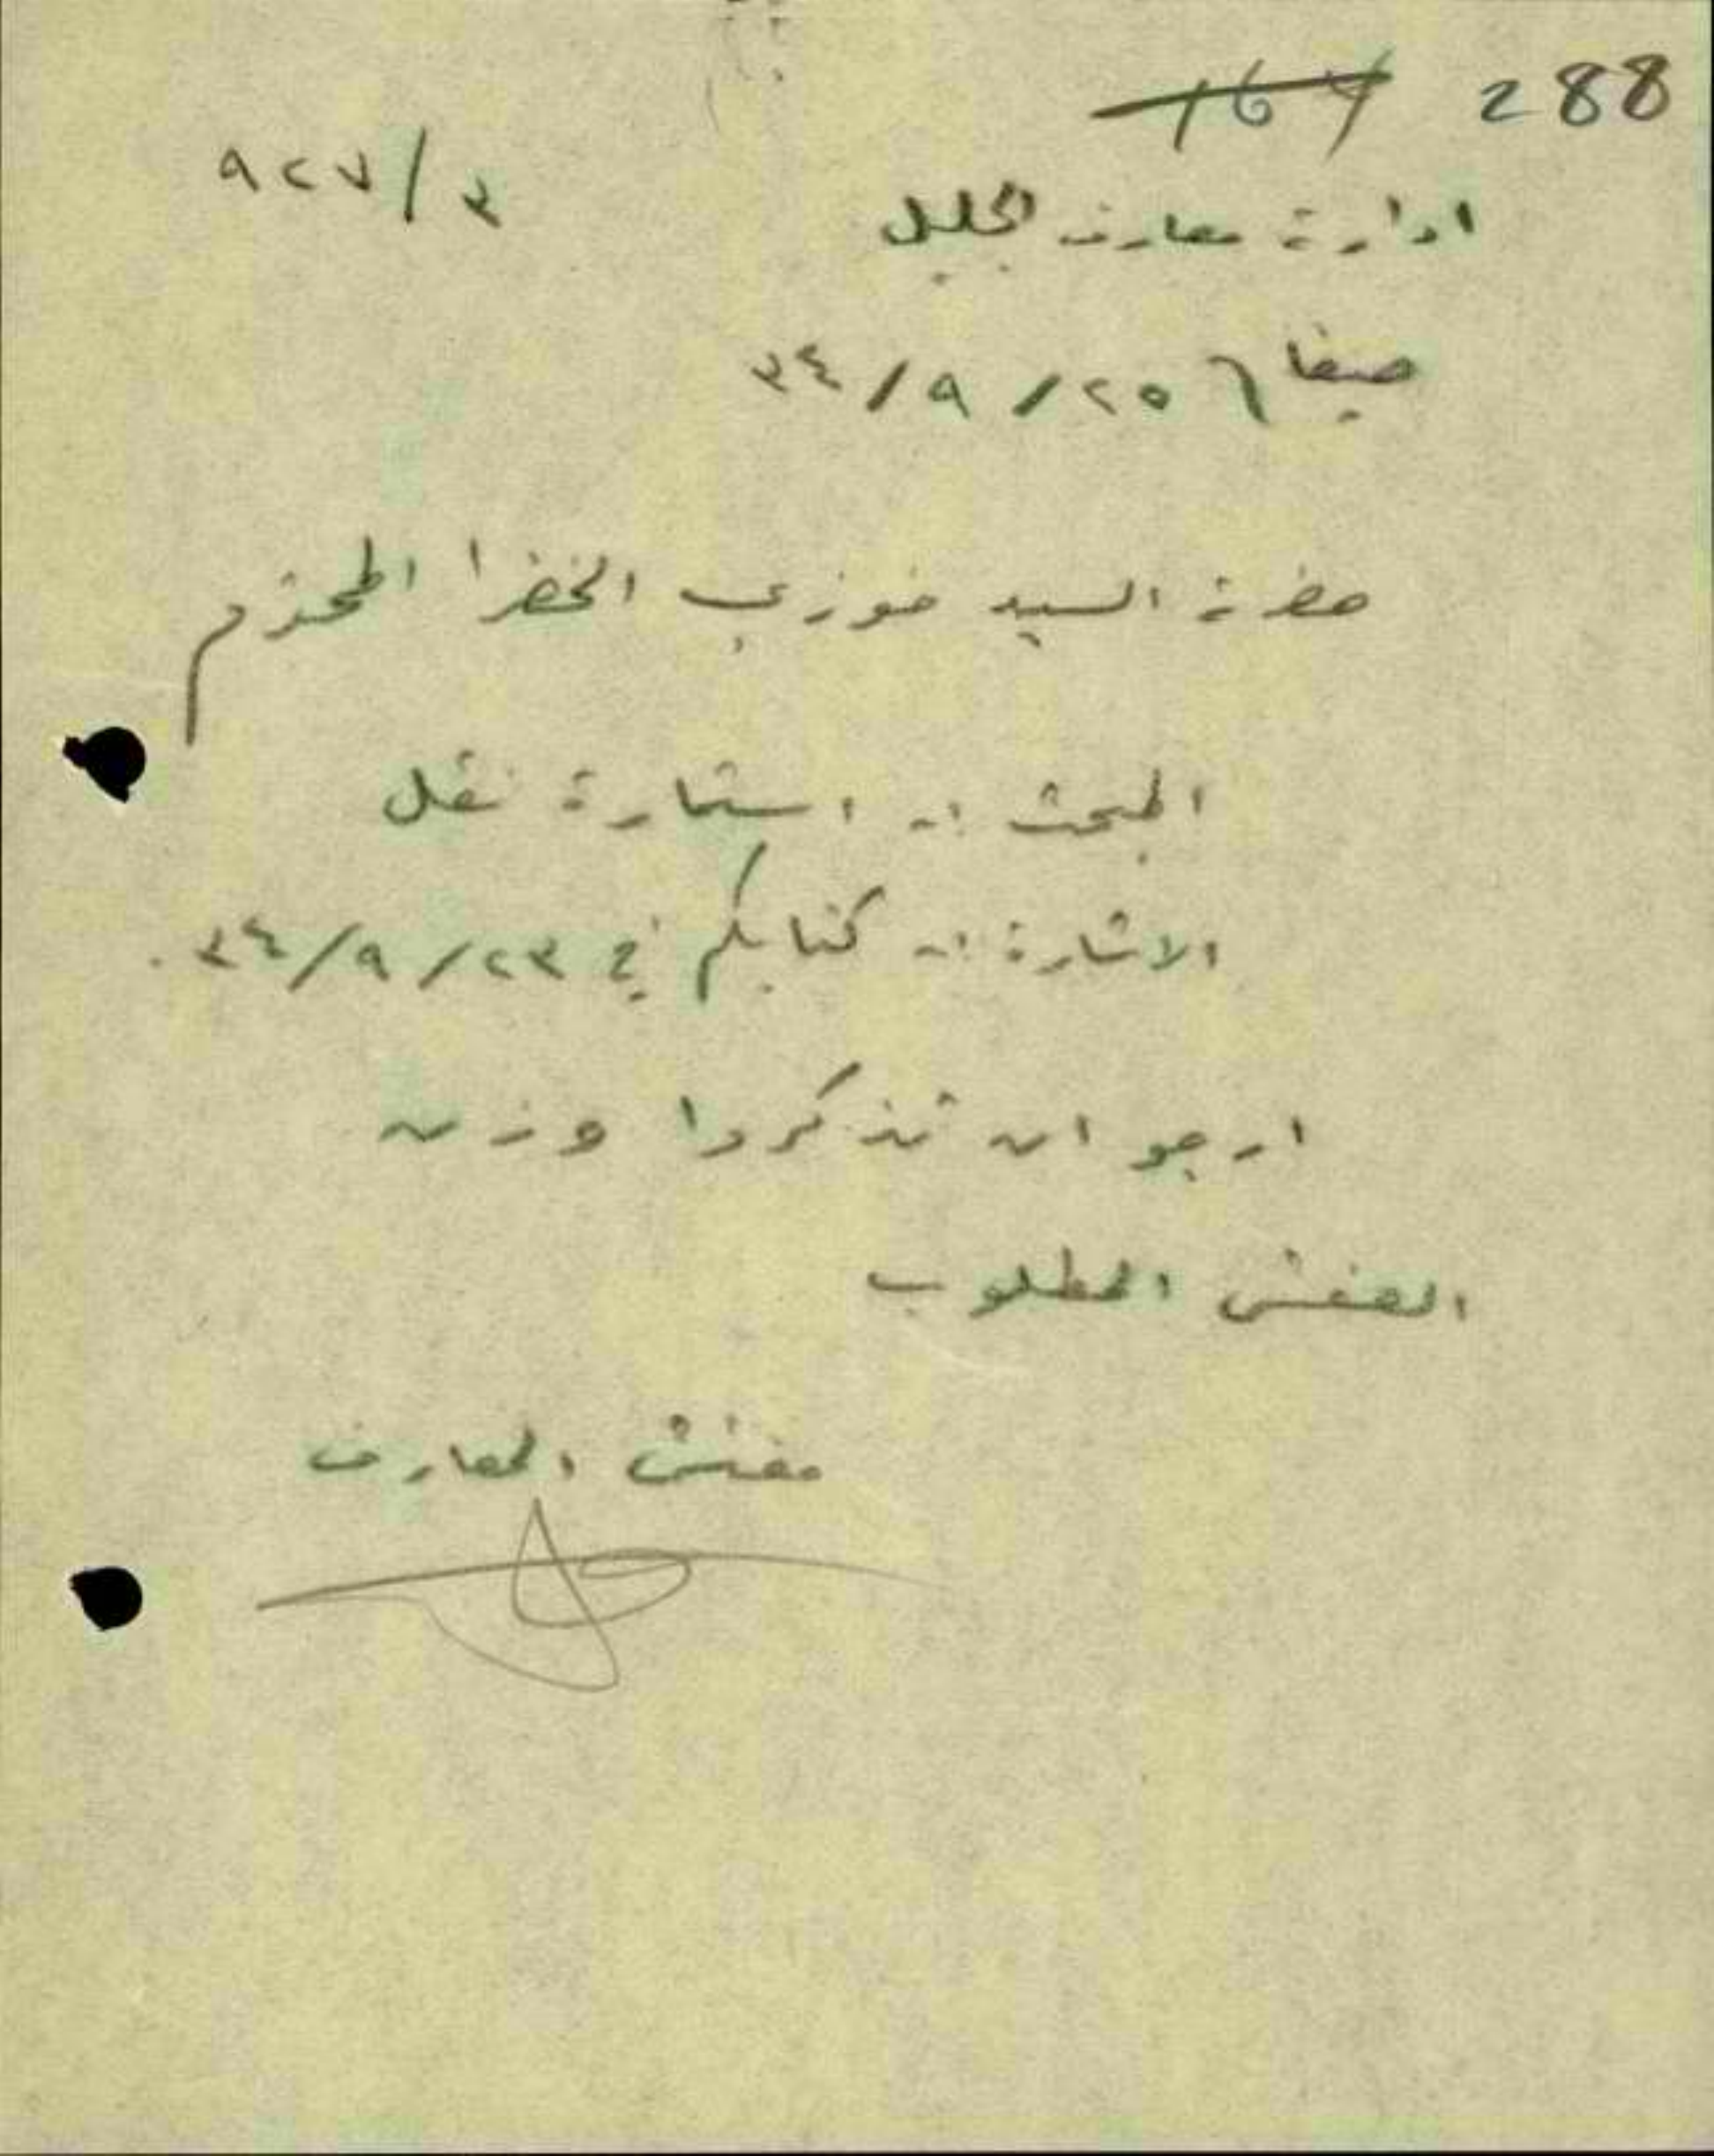 288 164
ادارة معارف الجليل ٣/٩٢٧
حيفا ٢٥/٩/٣٤
حضرة السيد فوزي الخضرا المحترم
المبحث :- استمارة نقل
الاشارة :- كتابكم في ٢٣/٩/٣٤.
ارجو ان تذكروا وزن
العفش المطلوب
مفتش المعارف